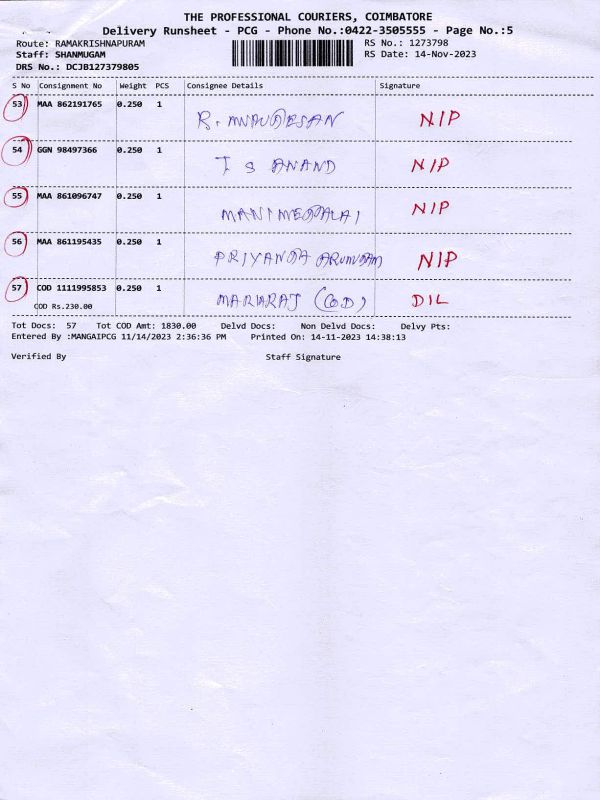 THE PROFESSIONAL COURIERS, COIMBATORE
Delivery Runsheet - PCG - Phone No.:0422-3505555 - Page No.:5
Route: RAMAKRISHNAPURAM RS No.: 1273798
Staff: SHANMUGAM RS Date: 14-Nov-2023
DRS No.: DCJB127379805
S No Consignment No Weight PCS Consignee Details Signature
53 MAA 862191765 0.250 1 R. MURUGESAN N/P
54 GGN 98497366 0.250 1 T S ANAND N/P
55 MAA 861096747 0.250 1 MANIMEGALAI N/P
56 MAA 861195435 0.250 1 PRIYANGA ARUMUGAM N/P
57 COD 1111995853 0.250 1 MARIRAJ (COD) D/L
COD Rs.230.00
Tot Docs: 57 Tot COD Amt: 1830.00 Delvd Docs: Non Delvd Docs: Delvy Pts:
Entered By :MANGAIPCG 11/14/2023 2:36:36 PM Printed On: 14-11-2023 14:38:13
Verified By Staff Signature